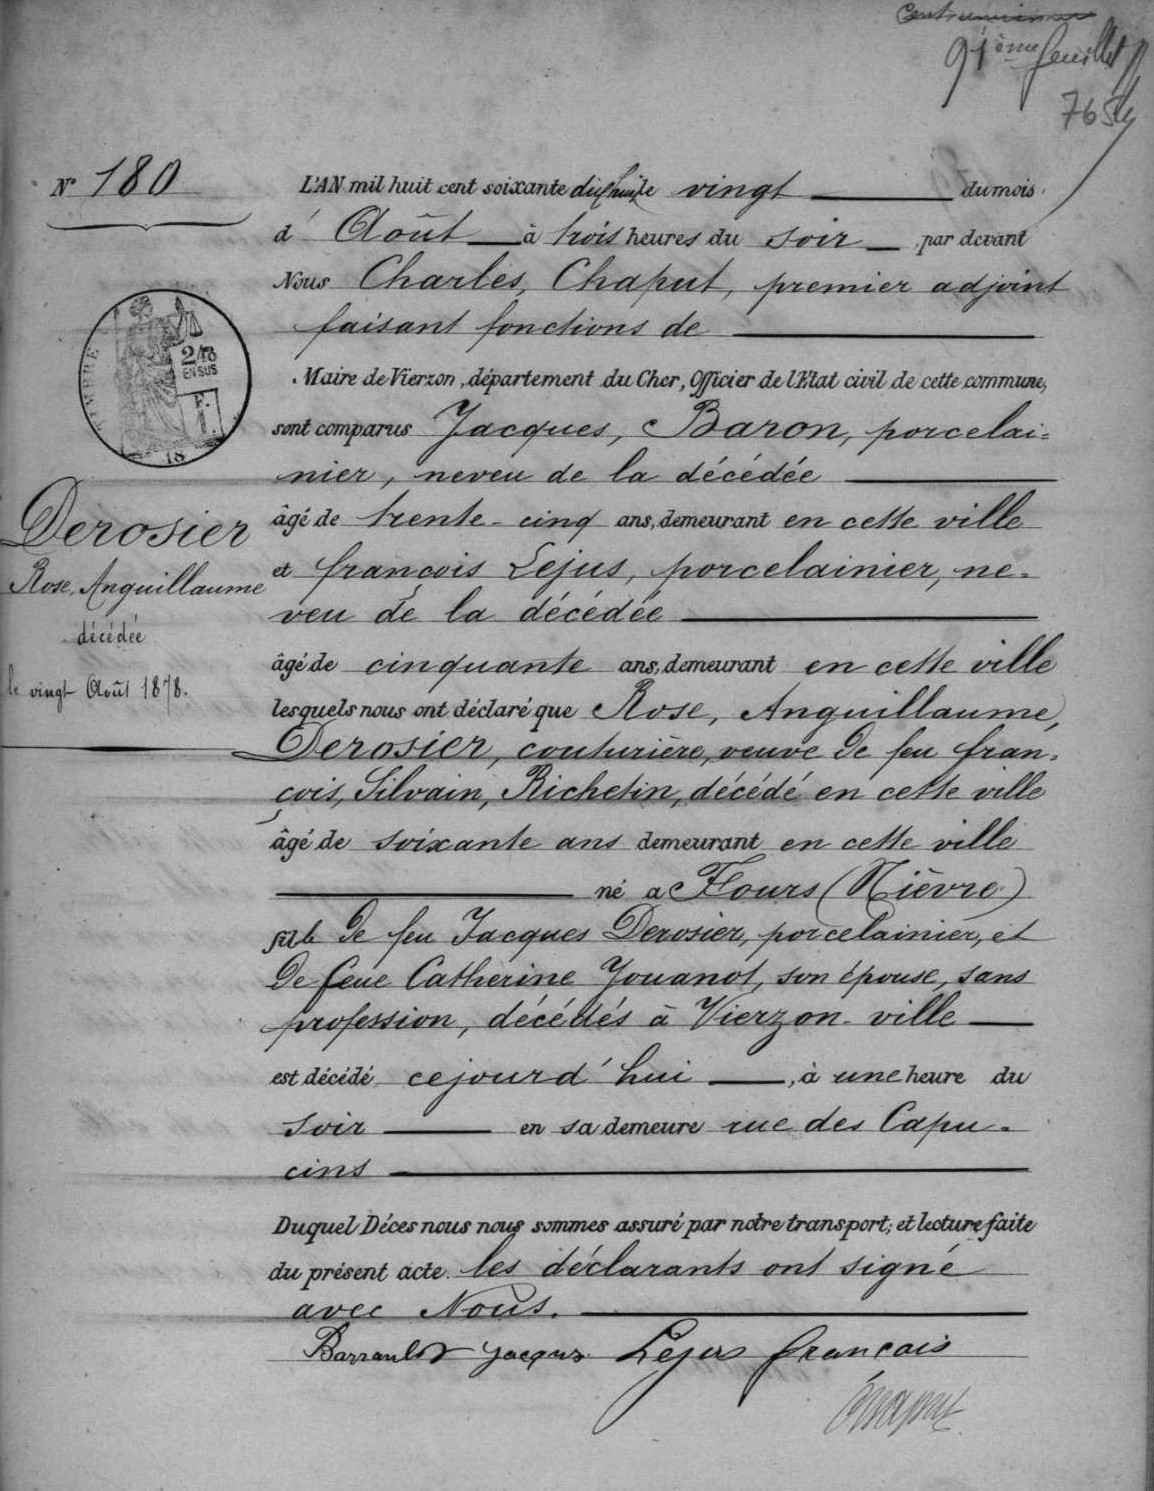 91ème feuillet
765
N° 180
L'AN mil huit cent soixante dix huit le vingt du mois
d' Août à trois heures du soir par devant
Nous Charles, Chaput, premier adjoint
faisant fonctions de
Maire de Vierzon, département du Cher, Officier de l'Etat civil de cette commune,
sont comparus Jacques, Baron, porcelai=
nier, neveu de la décédée
âgé de trente-cinq ans, demeurant en cette ville
et françois Lejus, porcelainier, ne-
veu de la décédée
âgé de cinquante ans, demeurant en cette ville
lesquels nous ont déclaré que Rose, Anguillaume,
Derosier, couturière, veuve de feu fran-
çois, Silvain, Richetin, décédé en cette ville
âgé de soixante ans demeurant en cette ville
né a Flours (Nièvre)
fille de feu Jacques Derosier, porcelainier, et
De feue Catherine Jouanot, son épouse, sans
profession, décédés à Vierzon-ville
est décédé cejourd'hui, à une heure du
soir en sa demeure rue des Capu-
cins
Duquel Décès nous nous sommes assuré par notre transport; et lecture faite
du présent acte les déclarants ont signé
avec Nous.
Barrault Jacques Lejus françois
Chaput
TIMBRE
2/10
EN SUS
18
Derosier
Rose, Anguillaume
décédée
le vingt Août 1878.